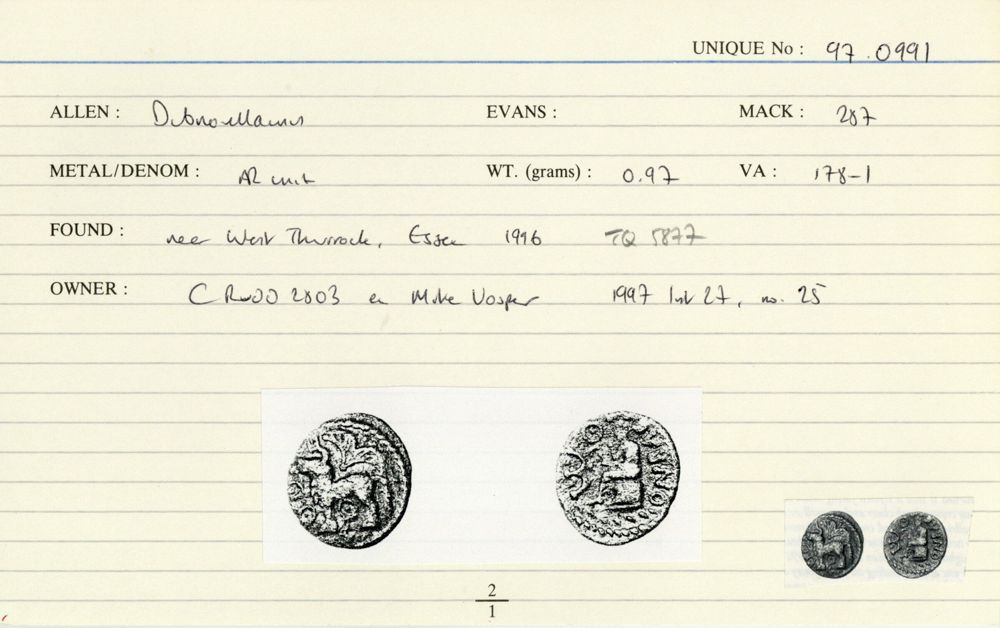 UNIQUE No : 97.0991
ALLEN : Dubnovellaunus EVANS : MACK : 287
METAL/DENOM : AR unit WT. (grams) : 0.97 VA : 178-1
FOUND : near West Thurrock, Essex 1996 TQ 5877
OWNER : C Rudd 2803 ex Mike Vosper 1997 list 27, no. 25
2
1